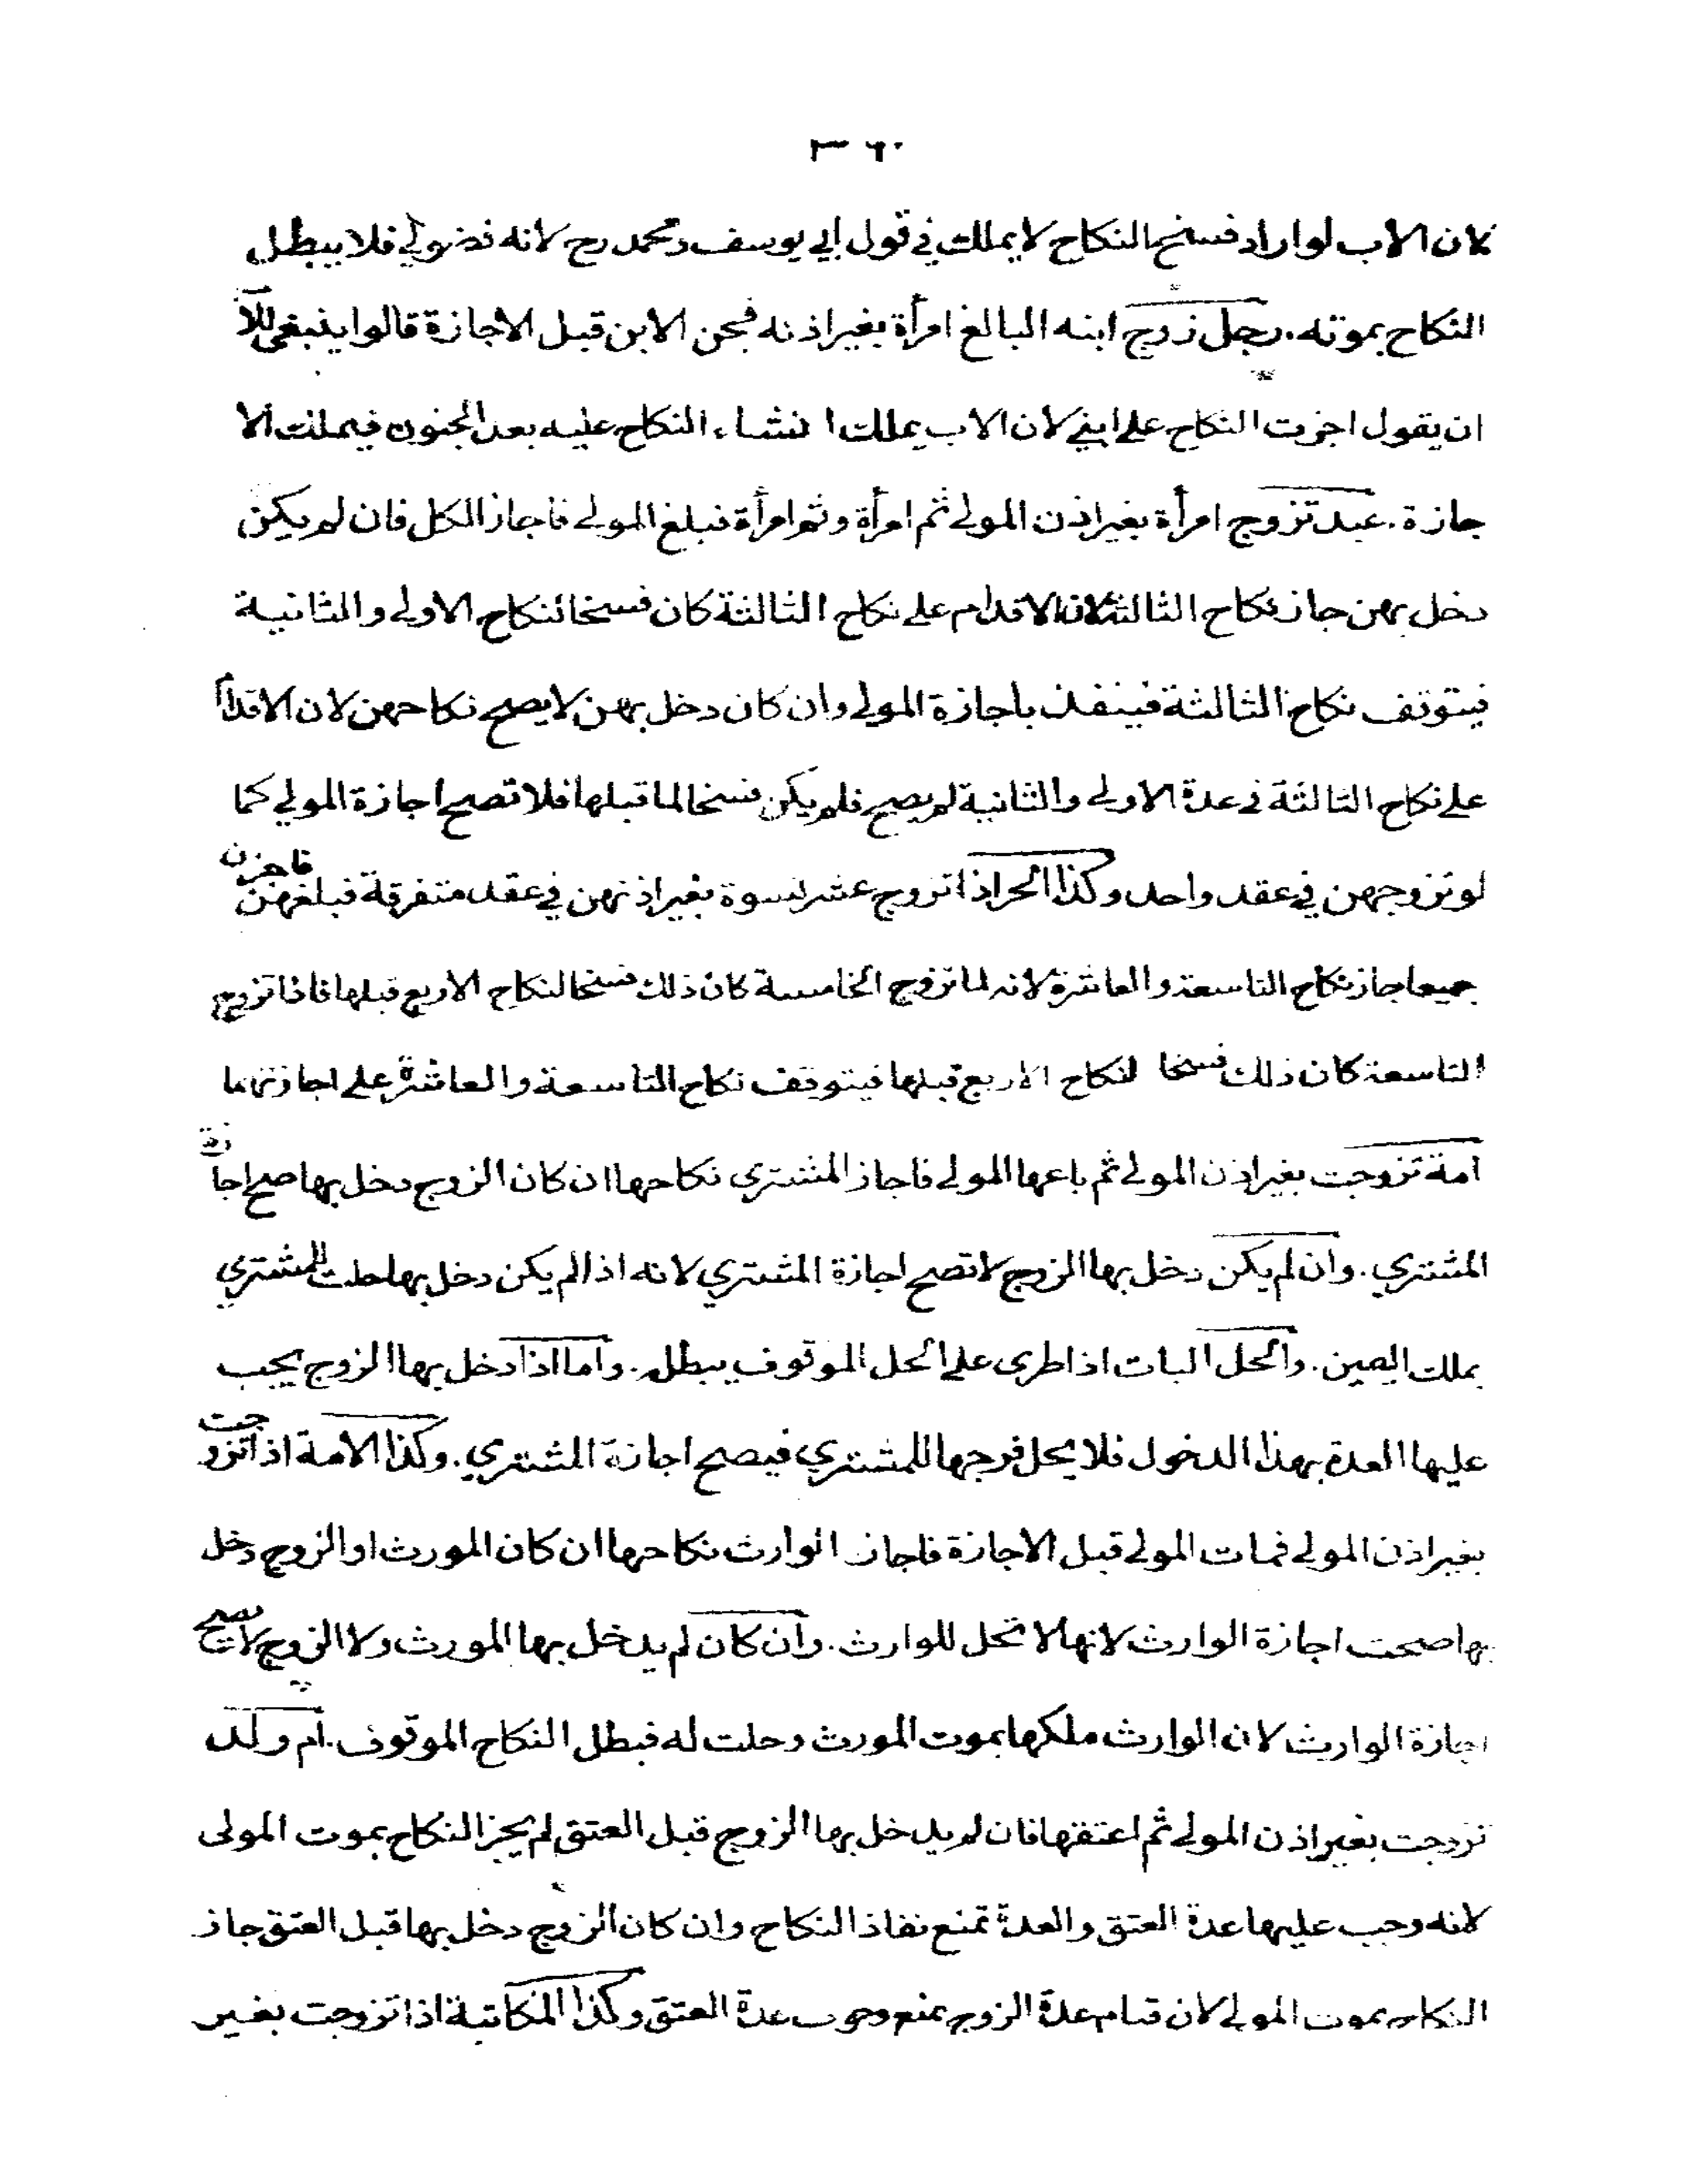 ٣٦٠
لان الاب لو اراد فسخ النكاح لا يملك في قول ابي يوسف ومحمد رح لانه فضولي فلا يبطل
النكاح بموته. رجل زوج ابنه البالغ امرأة بغير اذنه فجن الابن قبل الاجازة قالوا ينبغي للاب
ان يقول اجزت النكاح على ابني لان الاب يملك انشاء النكاح عليه بعد الجنون فيملك الا
جازة. عبد تزوج امرأة بغير اذن المولي ثم امرأة وثم امرأة فبلغ المولي فاجاز الكل فان لم يكن
دخل بهن جاز نكاح الثالثة لان الاقدام على نكاح الثالثة كان فسخا لنكاح الاولي والثانية
فيتوقف نكاح الثالثة فينفذ باجازة المولي وان كان دخل بهن لا يصح نكاحهن لان الاقدام
على نكاح الثالثة في عدة الاولي والثانية لم يصح فلم يكن فسخا لما قبلها فلا تصح اجازة المولي كما
لو تزوجهن في عقد واحد وكذا الحر اذا تزوج عشر نسوة بغير اذنهن في عقد متفرقة فبلغهن فاجزن
جميعا جاز نكاح التاسعة والعاشرة لانه لما تزوج الخامسة كان ذلك فسخا لنكاح الاربع قبلها فاذا تزوج
التاسعة كان ذلك فسخا لنكاح الاربع قبلها فيتوقف نكاح التاسعة والعاشرة على اجازتهما
امة تزوجت بغير اذن المولي ثم باعها المولي فاجاز المشتري نكاحها ان كان الزوج دخل بها صح اجازة
المشتري. وان لم يكن دخل بها الزوج لا تصح اجازة المشتري لانه اذا لم يكن دخل بها حلت للمشتري
بملك اليمين. والحل البات اذا طرى على الحل الموقوف يبطله. واما اذا دخل بها الزوج يجب
عليها العدة بهذا الدخول فلا يحل فرجها للمشتري فيصح اجازة المشتري. وكذا الامة اذا تزوجت
بغير اذن المولي فمات المولي قبل الاجازة فاجاز الوارث نكاحها ان كان المورث او الزوج دخل
بها صحت اجازة الوارث لانها لا تحل للوارث. وان كان لم يدخل بها المورث ولا الزوج لا تصح
اجازة الوارث لان الوارث ملكها بموت المورث وحلت له فبطل النكاح الموقوف. ام ولد
تزوجت بغير اذن المولي ثم اعتقها فان لم يدخل بها الزوج قبل العتق لم يجز النكاح بموت المولى
لانه وجب عليها عدة العتق والعدة تمنع نفاذ النكاح وان كان الزوج دخل بها قبل العتق جاز
النكاح بموت المولي لان قيام عدة الزوج يمنع وجوب عدة العتق وكذا المكاتبة اذا تزوجت بغير